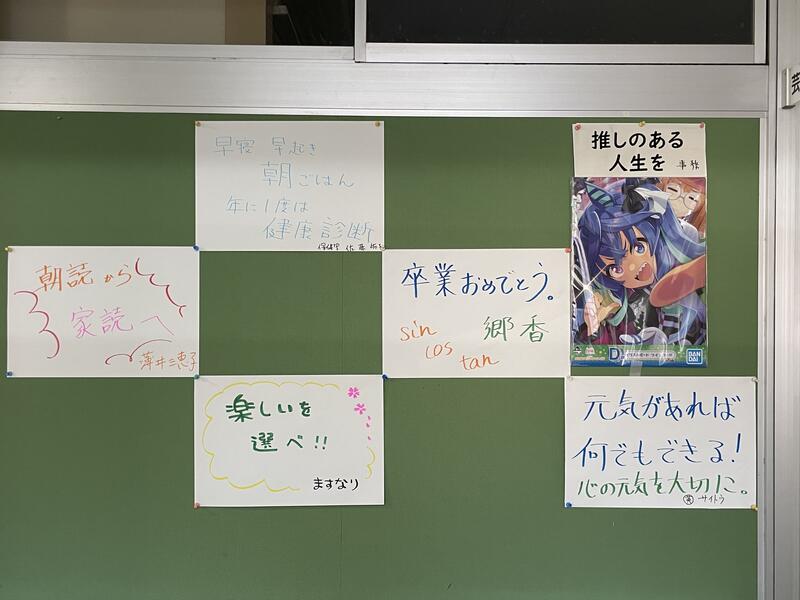 早寝 早起き
朝ごはん
年に1度は
健康診断
推しのある
人生を
事務
朝読から
家読へ
薄井三恵子
卒業おめでとう。
sin
cos
tan
郷香
D
BAN
DAI
楽しいを
選べ!!
ますなり
元気があれば
何でもできる!
心の元気を大切に。
サイトウ
芸